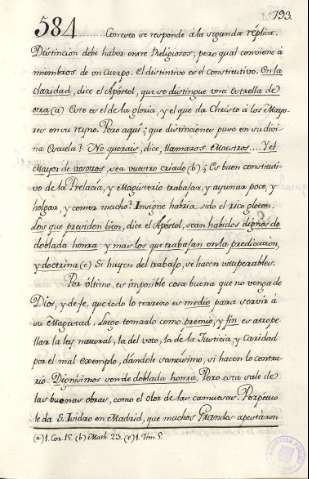 193.
584 Con esto se responde à la segunda replica.
Distincion debe haber entre Religiosos, pero qual conviene à
miembros de un cuerpo. El distintivo es el constitutivo. En la
claridad, dice el Apóstol, que se distingue una estrella de
otra (a) Esto es el de la gloria, y el que da Christo à los Mayo-
res en su reyno. Pero aqui; que distinciones puso en su divi-
na Escuela? No querais, dice, llamaros Maestros.... Y el
Mayor de vosotros, sea vuestro criado (b); Es buen constituti-
vo de la Prelacía, y Magisterio trabajar, y ayunar poco, y
holgar, y comer mucho?
los que presiden bien, dice el Apóstol, sean habidos dignos de
doblada honra y mas los que trabajan en la predicacion,
y doctrina (c) Si huyen del trabajo, se hacen vituperables.
Por ultimo, es imposible cosa buena que no venga de
Dios, y de fe, que todo lo terreno es medio para servir à
su Magestad. Luego tomarlo como premio, y fin es atrope-
llar la ley natural, la del voto, la de la Justicia, y Caridad
por el mal exemplo, dandole vanísimo, si hacen lo contra-
rio. Dignísimos son de doblada honra. Pero esta sale de
las buenas obras, como el olor de las camuesas. Perpetuo
le da S. Isidro en Madrid, que muchos Grandes apestaron
(a) 1. Cor. 15. (b) Math. 23. (c) 1. Tim. 5.